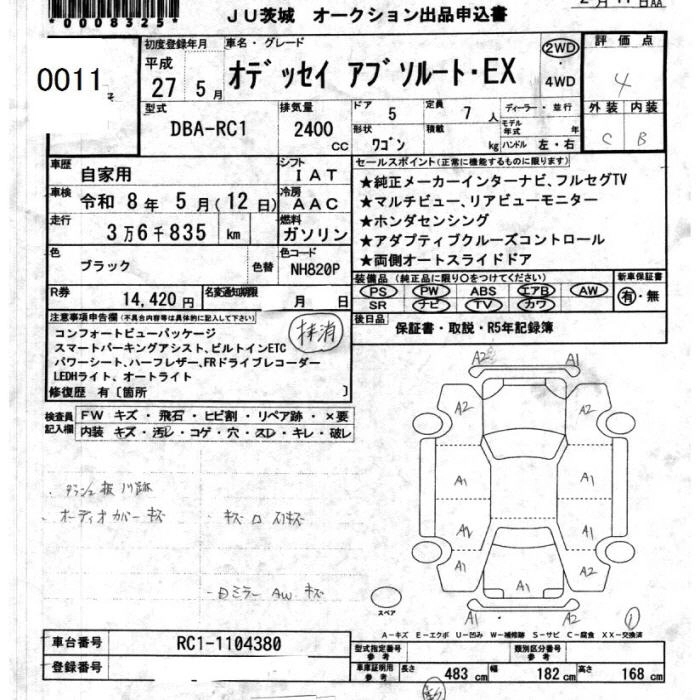 *0008325*
JU茨城 オークション出品申込書
0011
初度登録年月
平成
27 5月
車名・グレード
オデッセイ アブソルート・EX
2WD
4WD
評価点
4
外装 内装
C B
型式
DBA-RC1
排気量
2400
CC
ドア
5
定員
7 人
形状
ワゴン
積載
kg
ディーラー・並行
モデル年式 年
ハンドル 左・右
車歴
自家用
シフト
IAT
車検
令和 8年 5月(12日)
冷房
AAC
走行
3万6千835 km
燃料
ガソリン
色
ブラック
色替
色コード
NH820P
R券
14,420円
名変通知期限
月 日
セールスポイント(正常に機能するものに限ります)
★純正メーカーインターナビ、フルセグTV
★マルチビュー、リアビューモニター
★ホンダセンシング
★アダプティブクルーズコントロール
★両側オートスライドドア
装備品(純正品に限り○をつけてください)
PS PW ABS エアB AW
SR ナビ TV カワ
新車保証書
有・無
後日品
保証書・取説・R5年記録簿
注意事項申告欄(不具合内容等は具体的に記入して下さい)
コンフォートビューパッケージ
スマートパーキングアシスト、ビルトインETC
パワーシート、ハーフレザー、FRドライブレコーダー
LEDHライト、オートライト
修復歴 有〔箇所 〕
抹消
検査員記入欄
FW キズ・飛石・ヒビ割・リペア跡・×要
内装 キズ・汚レ・コゲ・穴・スレ・キレ・破レ
オーディオカバー キズ
ミラー AW キズ
A2 A1
A2 A2
A1 A1
A2 A1
A2 A2
A1
A1 A2
スペア
①
A-キズ E-エクボ U-凹み W-補修跡 S-サビ C-腐食 XX-交換済
車台番号
RC1-1104380
登録番号
型式指定番号
参考
類別区分番号
参考
車庫証明用
参考
長さ 483 cm 幅 182 cm 高さ 168 cm